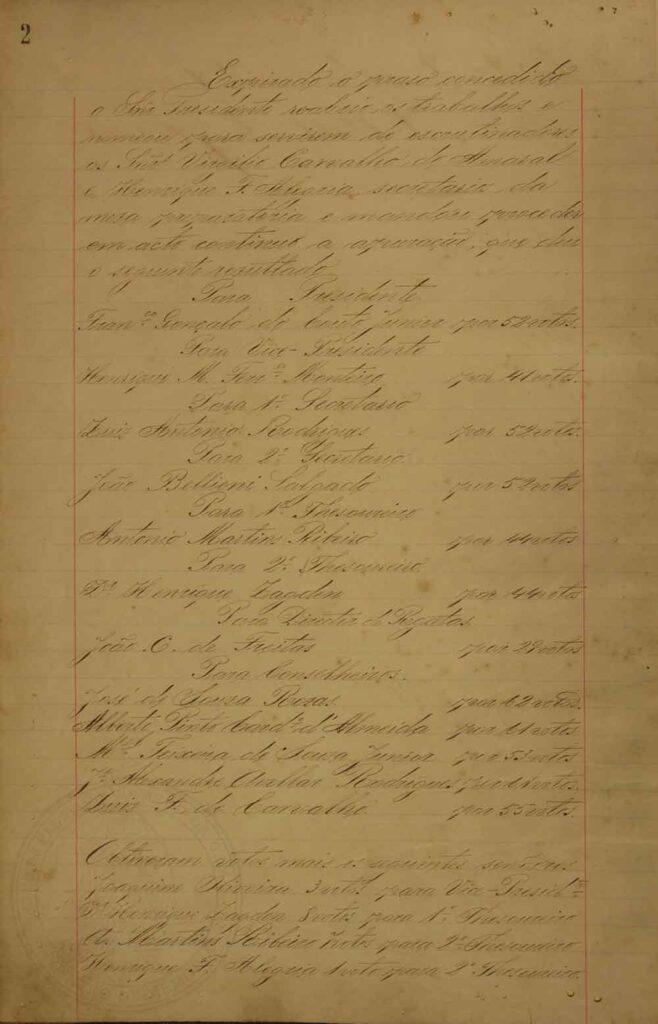 2
Expirado o praso concedido
o Snr. Presidente reabrio os trabalhos e
nomeou para servirem de escrutinadores
os Snrs. Virgilio Carvalho do Amaral
e Henrique F. Alegria, secretario da
mesa preparatória e mandou proceder
em acto continuo a apuração, que deu
o seguinte resultado
Para Presidente
Franco Gonçalo do Couto Junior por 52 votos.
Para Vice-Presidente
Henrique M. Ferra Monteiro por 41 votos.
Para 1º Secretario
Luiz Antonio Rodrigues por 52 votos.
Para 2º Secretario.
João Bellieni Salgado por 52 votos
Para 1º Thesoureiro
Antonio Martins Ribeiro por 44 votos
Para 2º Thesoureiro
Henrique Lagden por 44 votos
Para Director de Regatas
João C. de Freitas por 29 votos
Para Conselheiros.
José de Souza Rosas por 62 votos.
Alberto Pinto Cardo d'Almeida por 61 votos.
Mel Teixeira de Souza Junior por 53 votos
Je Alexandre Avellar Rodrigues por votos.
Luiz F. de Carvalho por 55 votos.
Obtiveram votos mais os seguintes senhores
Joaquim Oliveira 3 votos para Vice-Preside
Henrique Lagden 8 votos para 1º Thesoureiro
A. Martins Ribeiro votos para 2º Thesoureiro
Henrique F. Alegria 1 voto para 2º Thesoureiro.